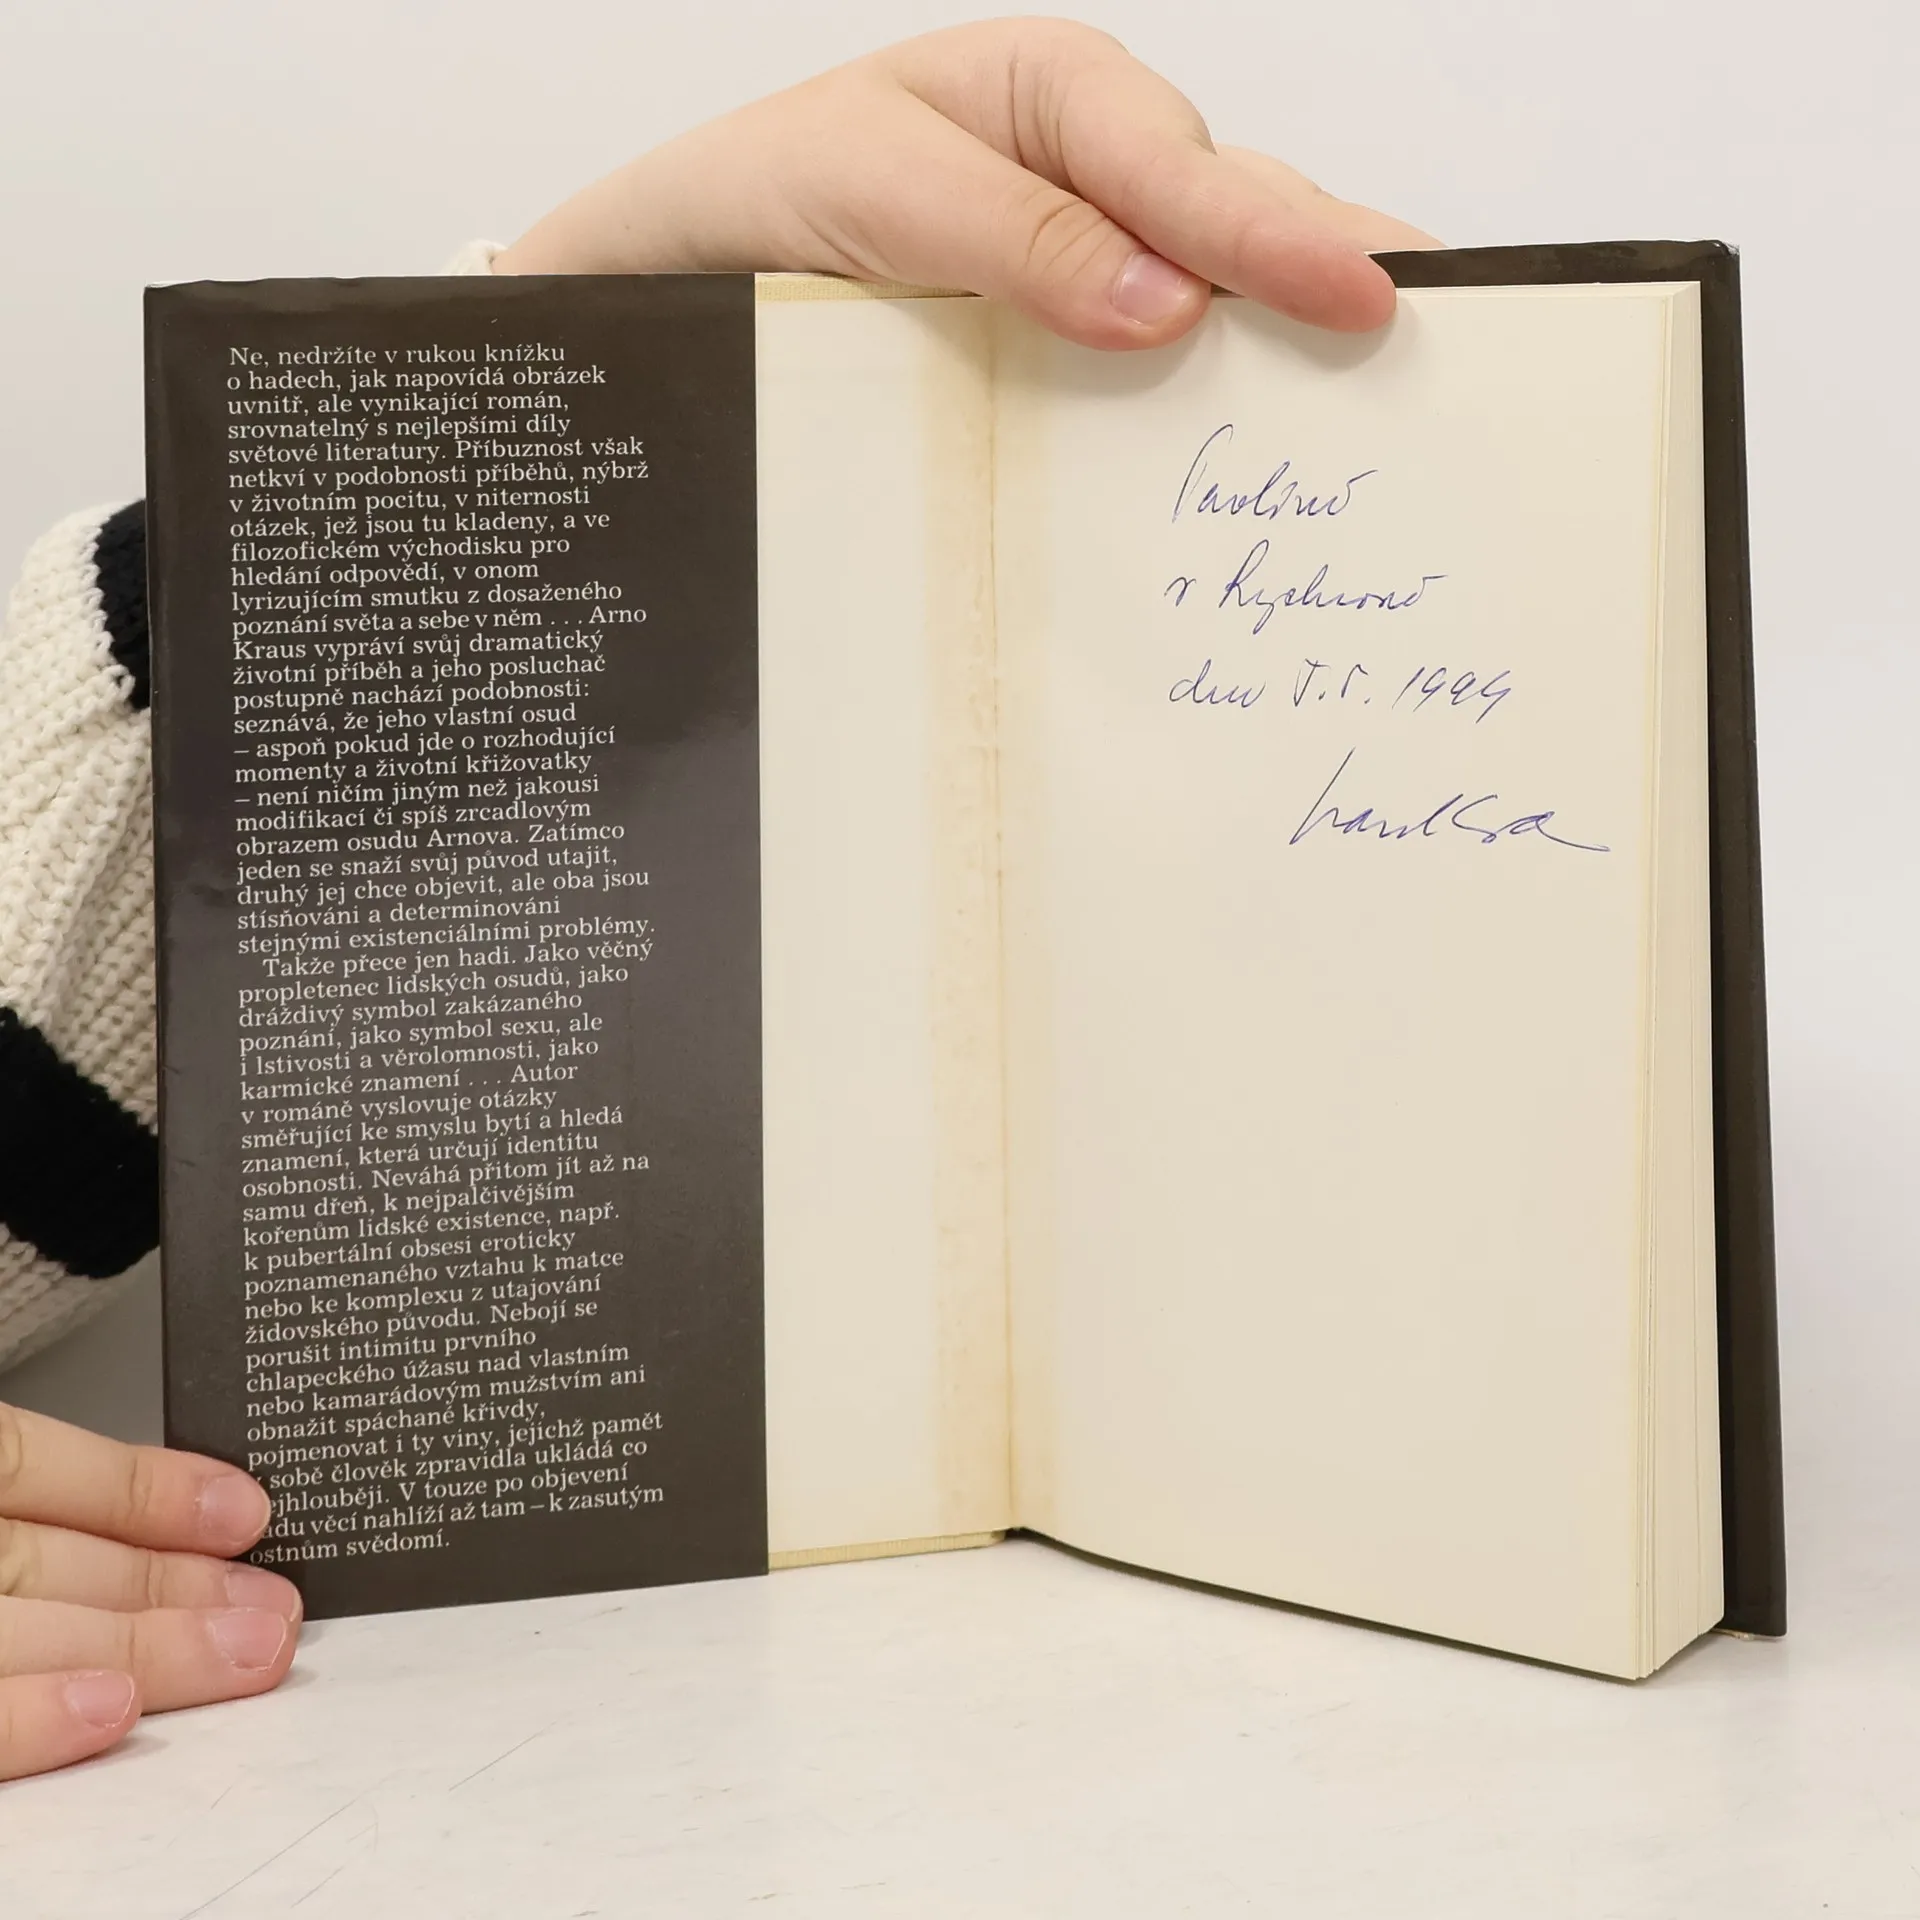 Ne, nedržíte v rukou knížku
o hadech, jak napovídá obrázek
uvnitř, ale vynikající román,
srovnatelný s nejlepšími díly
světové literatury. Příbuznost však
netkví v podobnosti příběhů, nýbrž
v životním pocitu, v niternosti
otázek, jež jsou tu kladeny, a ve
filozofickém východisku pro
hledání odpovědí, v onom
lyrizujícím smutku z dosaženého
poznání světa a sebe v něm . . . Arno
Kraus vypráví svůj dramatický
životní příběh a jeho posluchač
postupně nachází podobnosti:
seznává, že jeho vlastní osud
– aspoň pokud jde o rozhodující
momenty a životní křižovatky
– není ničím jiným než jakousi
modifikací či spíš zrcadlovým
obrazem osudu Arnova. Zatímco
jeden se snaží svůj původ utajit,
druhý jej chce objevit, ale oba jsou
stísňováni a determinováni
stejnými existenciálními problémy.
Takže přece jen hadi. Jako věčný
propletenec lidských osudů, jako
dráždivý symbol zakázaného
poznání, jako symbol sexu, ale
i lstivosti a věrolomnosti, jako
karmické znamení . . . Autor
v románě vyslovuje otázky
směřující ke smyslu bytí a hledá
znamení, která určují identitu
osobnosti. Neváhá přitom jít až na
samu dřeň, k nejpalčivějším
kořenům lidské existence, např.
k pubertální obsesi eroticky
poznamenaného vztahu k matce
nebo ke komplexu z utajování
židovského původu. Nebojí se
porušit intimitu prvního
chlapeckého úžasu nad vlastním
nebo kamarádovým mužstvím ani
obnažit spáchané křivdy,
pojmenovat i ty viny, jejichž pamět
sobě člověk zpravidla ukládá co
ejhlouběji. V touze po objevení
adu věcí nahlíží až tam – k zasutým
ostnům svědomí.
Pavlíně
v Rychnově
dne 5. 5. 1994